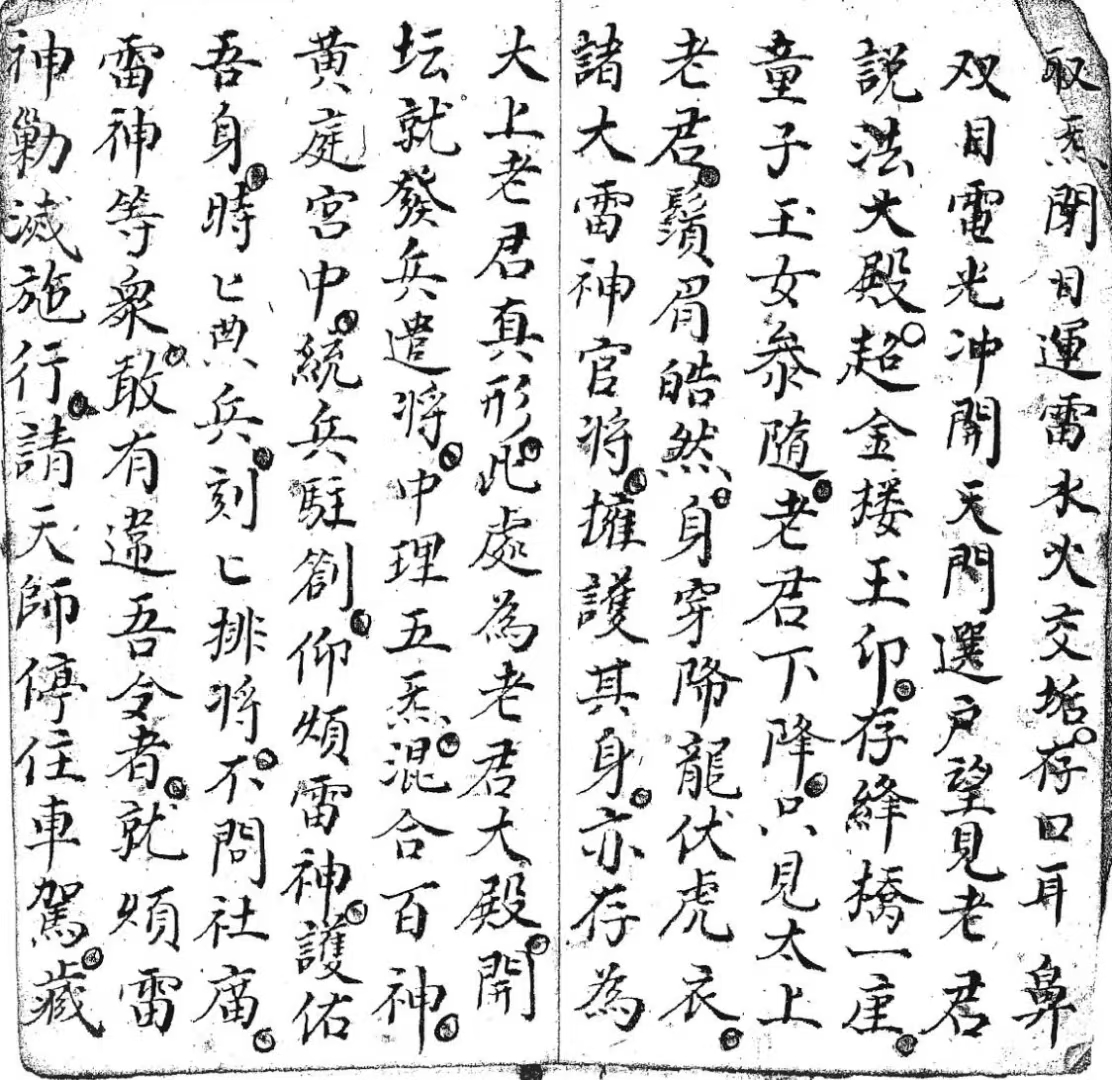 取炁閉目運雷水火交媾存口耳鼻
双目電光冲開天門選户望見老君
説法大殿超金楼玉印存絳橋一座
童子玉女参随老君下降只見太上
老君鬚眉皓然身穿降龍伏虎衣
諸大雷神官将擁護其身亦存為
大上老君真形此處為老君大殿開
坛就發兵遣将中理五炁混合百神
黄庭宮中統兵駐劄仰煩雷神護佑
吾身時匕典兵刻匕排将不問社庙
雷神等衆敢有違吾令者就煩雷
神勦滅施行請天師停住車駕藏